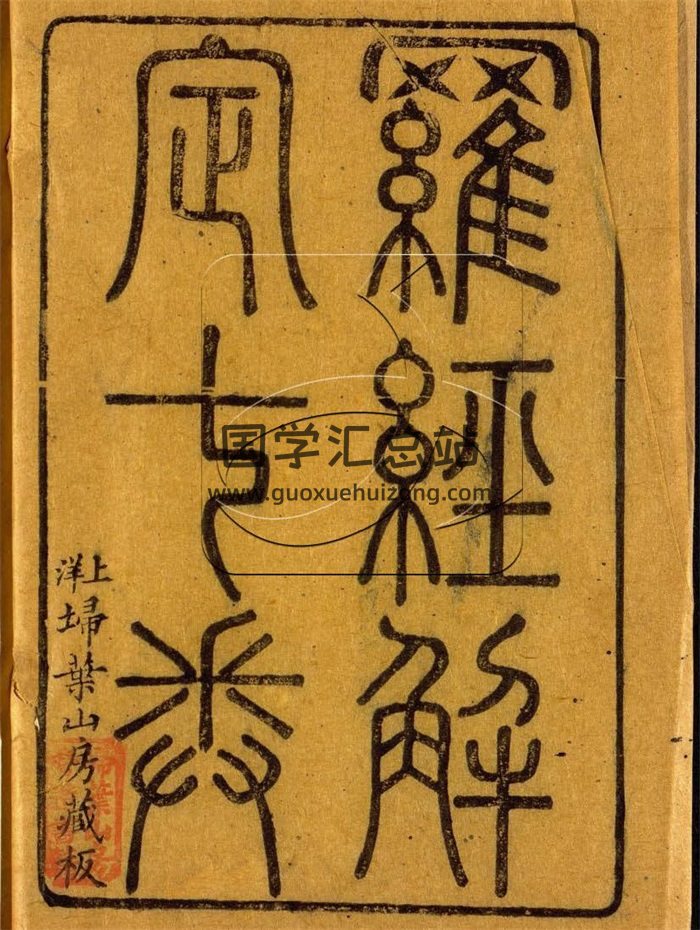 羅經解
定七卷
上洋
埽葉山房藏板
国学汇总站
www.guoxuehuizong.com